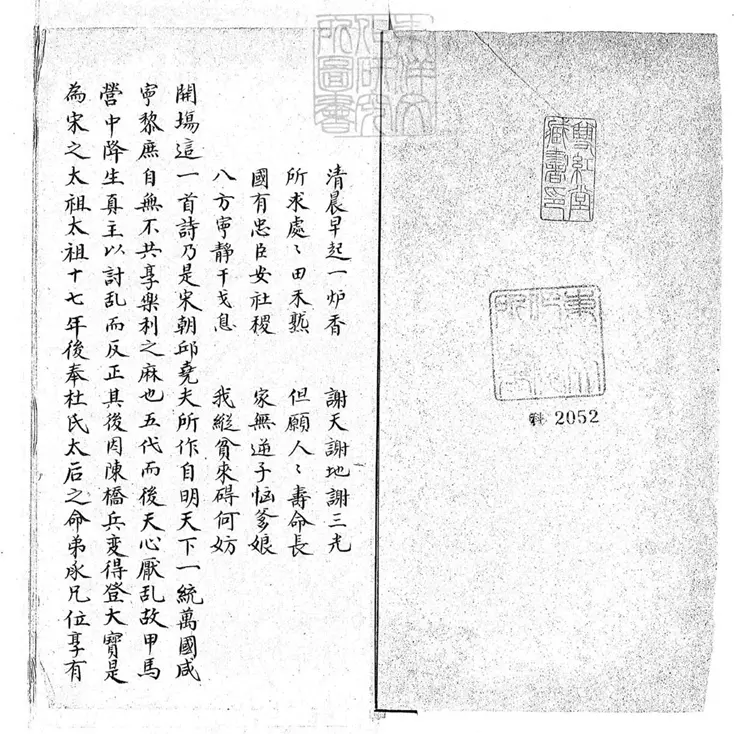 雙紅堂
藏書印
東洋文
化研究
所圖書
科 2052
東洋文
化研究
所圖書
清晨早起一炉香 謝天謝地謝三光
所求處〻田禾熟 但願人〻壽命長
國有忠臣安社稷 家無逆子惱爹娘
八方寧靜干戈息 我縱貧來碍何妨
開場這一首詩乃是宋朝邱堯夫所作自明天下一統萬國咸
寧黎庶自無不共享樂利之庥也五代而後天心厭乱故甲馬
營中降生真主以討乱而反正其後因陳橋兵变得登大寶是
為宋之太祖太祖十七年後奉杜氏太后之命弟永兄位享有